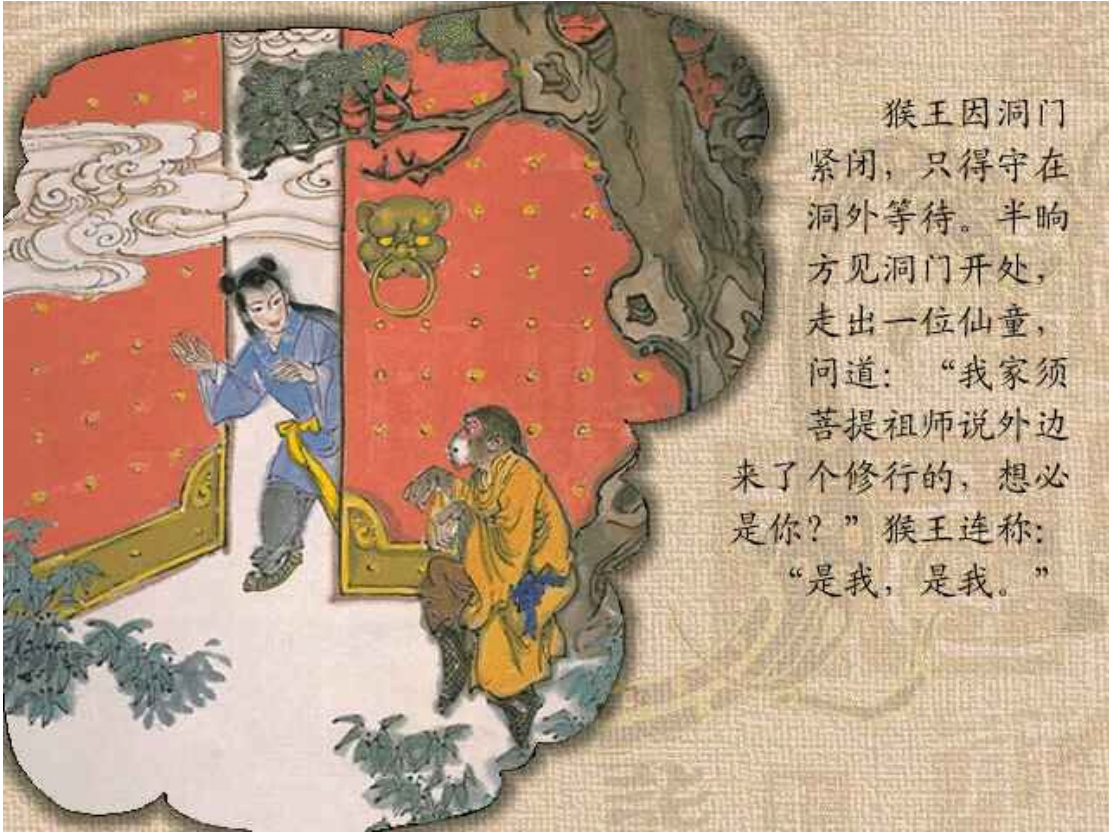 猴王因洞门
紧闭，只得守在
洞外等待。半晌
方见洞门开处，
走出一位仙童，
问道：“我家须
菩提祖师说外边
来了个修行的，想必
是你？”猴王连称：
“是我，是我。”